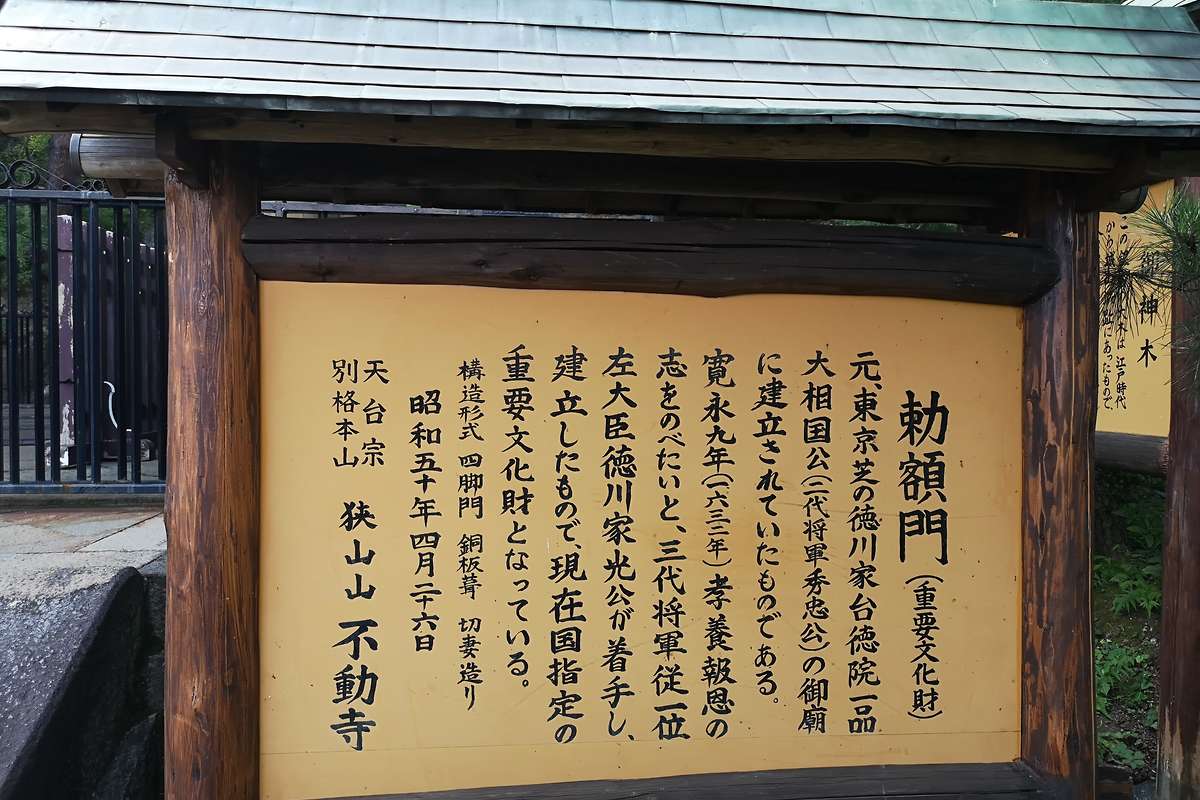 勅額門(重要文化財)
元、東京芝の徳川家台徳院一品
大相国公(二代将軍秀忠公)の御廟
に建立されていたものである。
寛永九年(一六三二年)孝養報恩の
志をのべたいと、三代将軍従一位
左大臣徳川家光公が着手し、
建立したもので、現在国指定の
重要文化財となっている。
構造形式 四脚門 銅板葺 切妻造り
昭和五十年四月二十六日
天台宗
別格本山 狭山山 不動寺
神木
江戸時代
にあったもので、